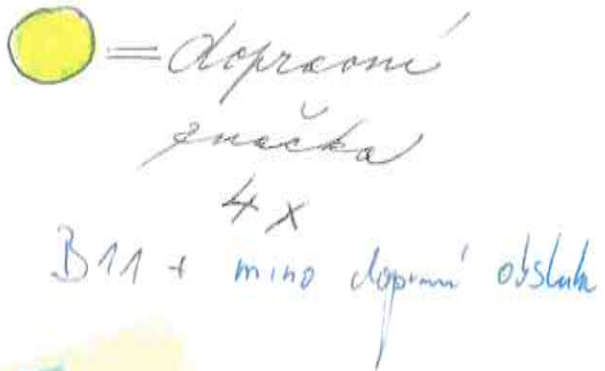 = dopravní
značka
4 x
B11 + mimo dopravní obsluhu